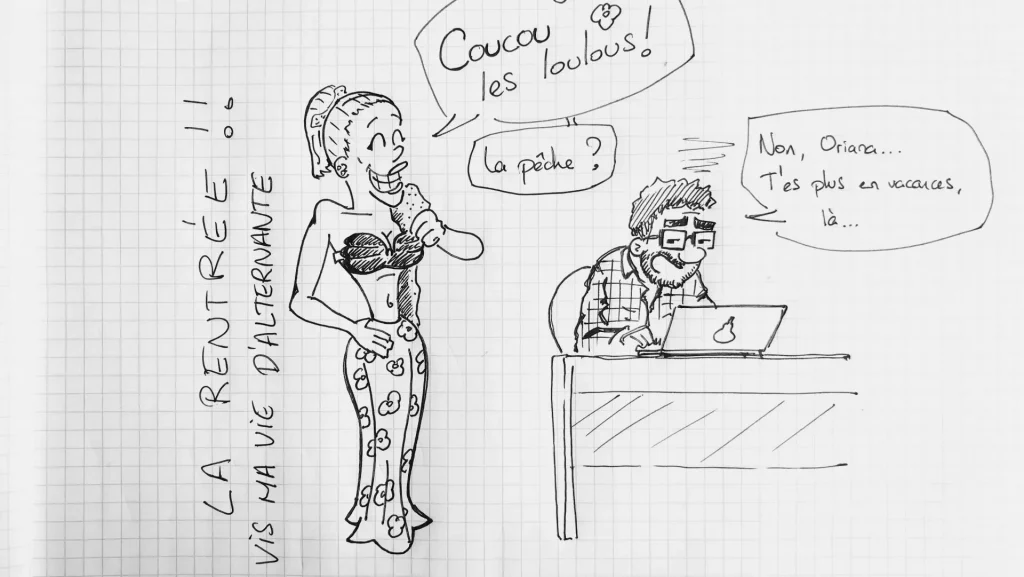 LA RENTRÉE !!
VIS MA VIE D'ALTERNANTE
Coucou
les loulous!
La pêche ?
Non, Oriana...
T'es plus en vacances,
là...